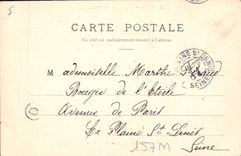 CARTE POSTALE
Ce côté est exclusivement réservé à l'adresse
M ademoiselle Marthe
Bougie de l'Etoile
Avenue de Paris
La Plaine St Denis
Seine
157M